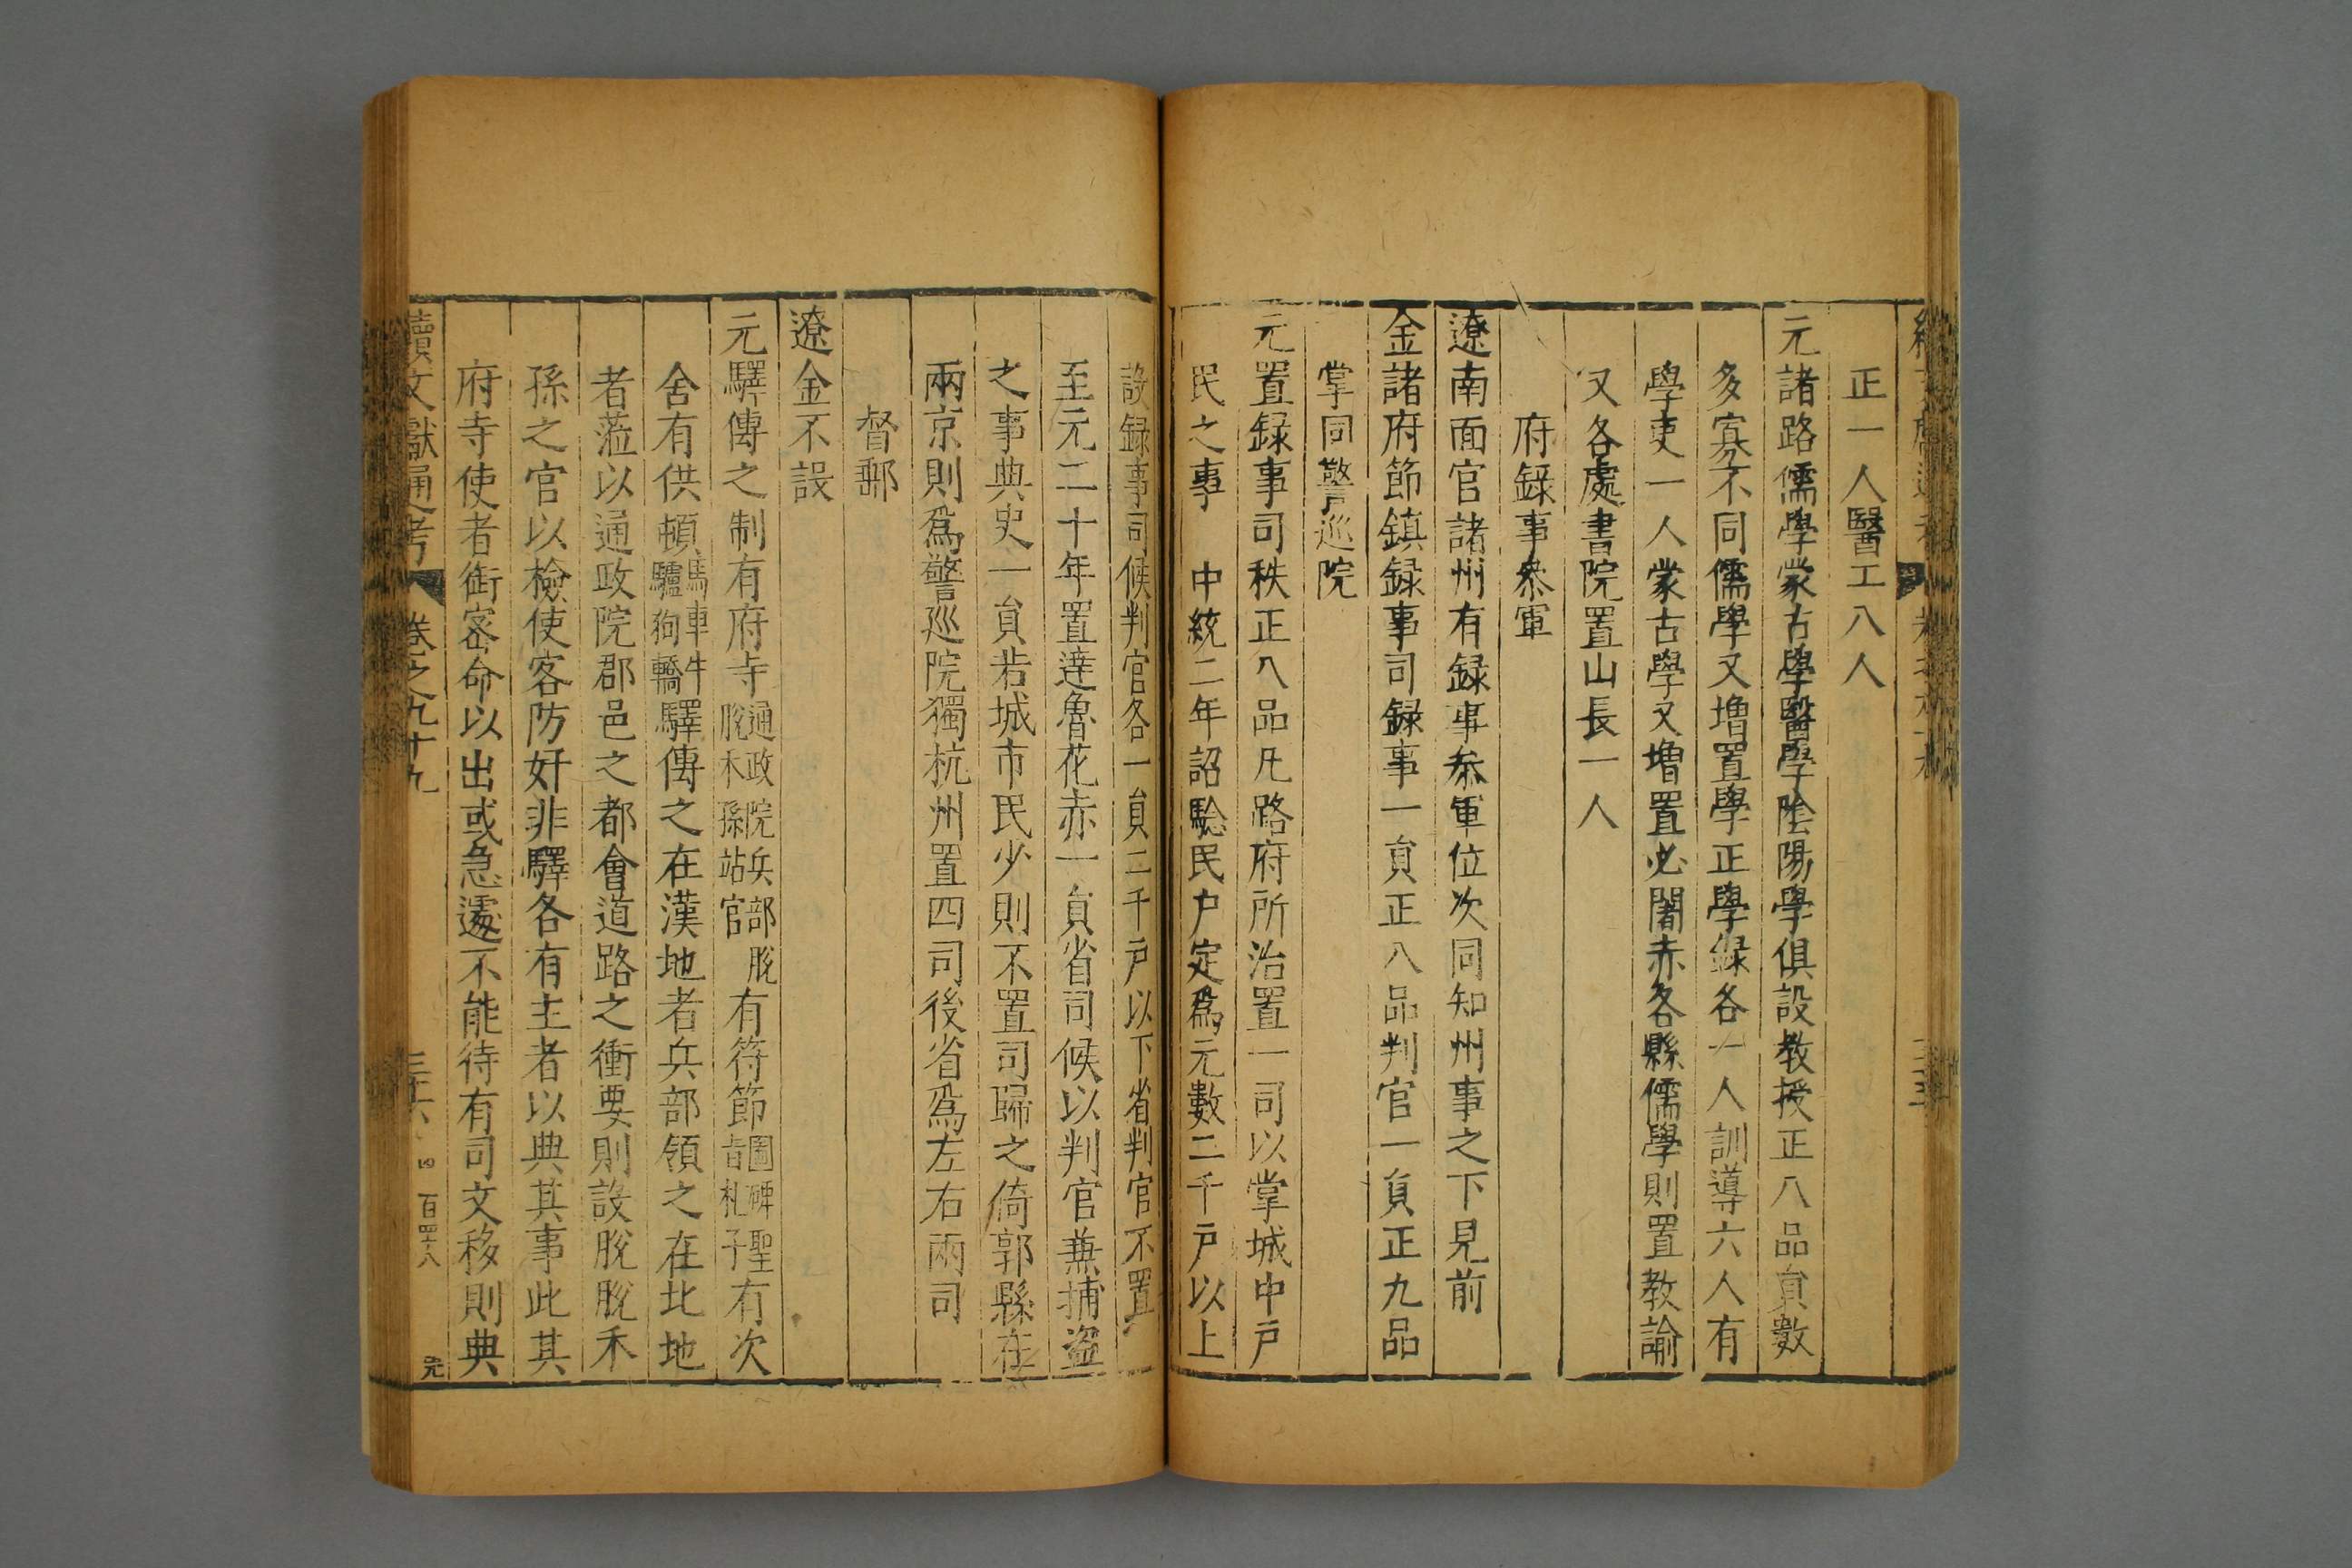 正一人醫工八人
元諸路儒學蒙古學醫學陰陽學俱設教授正八品員數
多寡不同儒學又增置學正學錄各一人訓導六人有
學吏一人蒙古學又增置必闍赤各縣儒學則置教諭
又各處書院置山長一人
府錄事叅軍
遼南面官諸州有録事叅軍位次同知州事之下見前
金諸府節鎮録事司録事一員正八品判官一員正九品
掌同警巡院
元置録事司秩正八品凡路府所治置一司以掌城中戸
民之事 中統二年詔驗民戸定爲元數二千戸以上
設録事司候判官各一員二千戸以下省判官不置
至元二十年置達魯花赤一員省司候以判官兼捕盜
之事典史一員若城市民少則不置司歸之倚郭縣在
兩京則爲警廵院獨杭州置四司後省爲左右兩司
督郵
遼金不設
元驛傳之制有府寺通政院兵部脫脫木孫站官有符節圖碑聖旨札子有次
舍有供頓馬車牛驢狗轎驛傳之在漢地者兵部領之在北地
者蒞以通政院郡邑之都會道路之衝要則設脫脫禾
孫之官以檢使客防奸非驛各有主者以典其事此其
府寺使者銜密命以出或急遽不能待有司文移則典
續文獻通考 卷之九十九 三十六 四百四十八 元